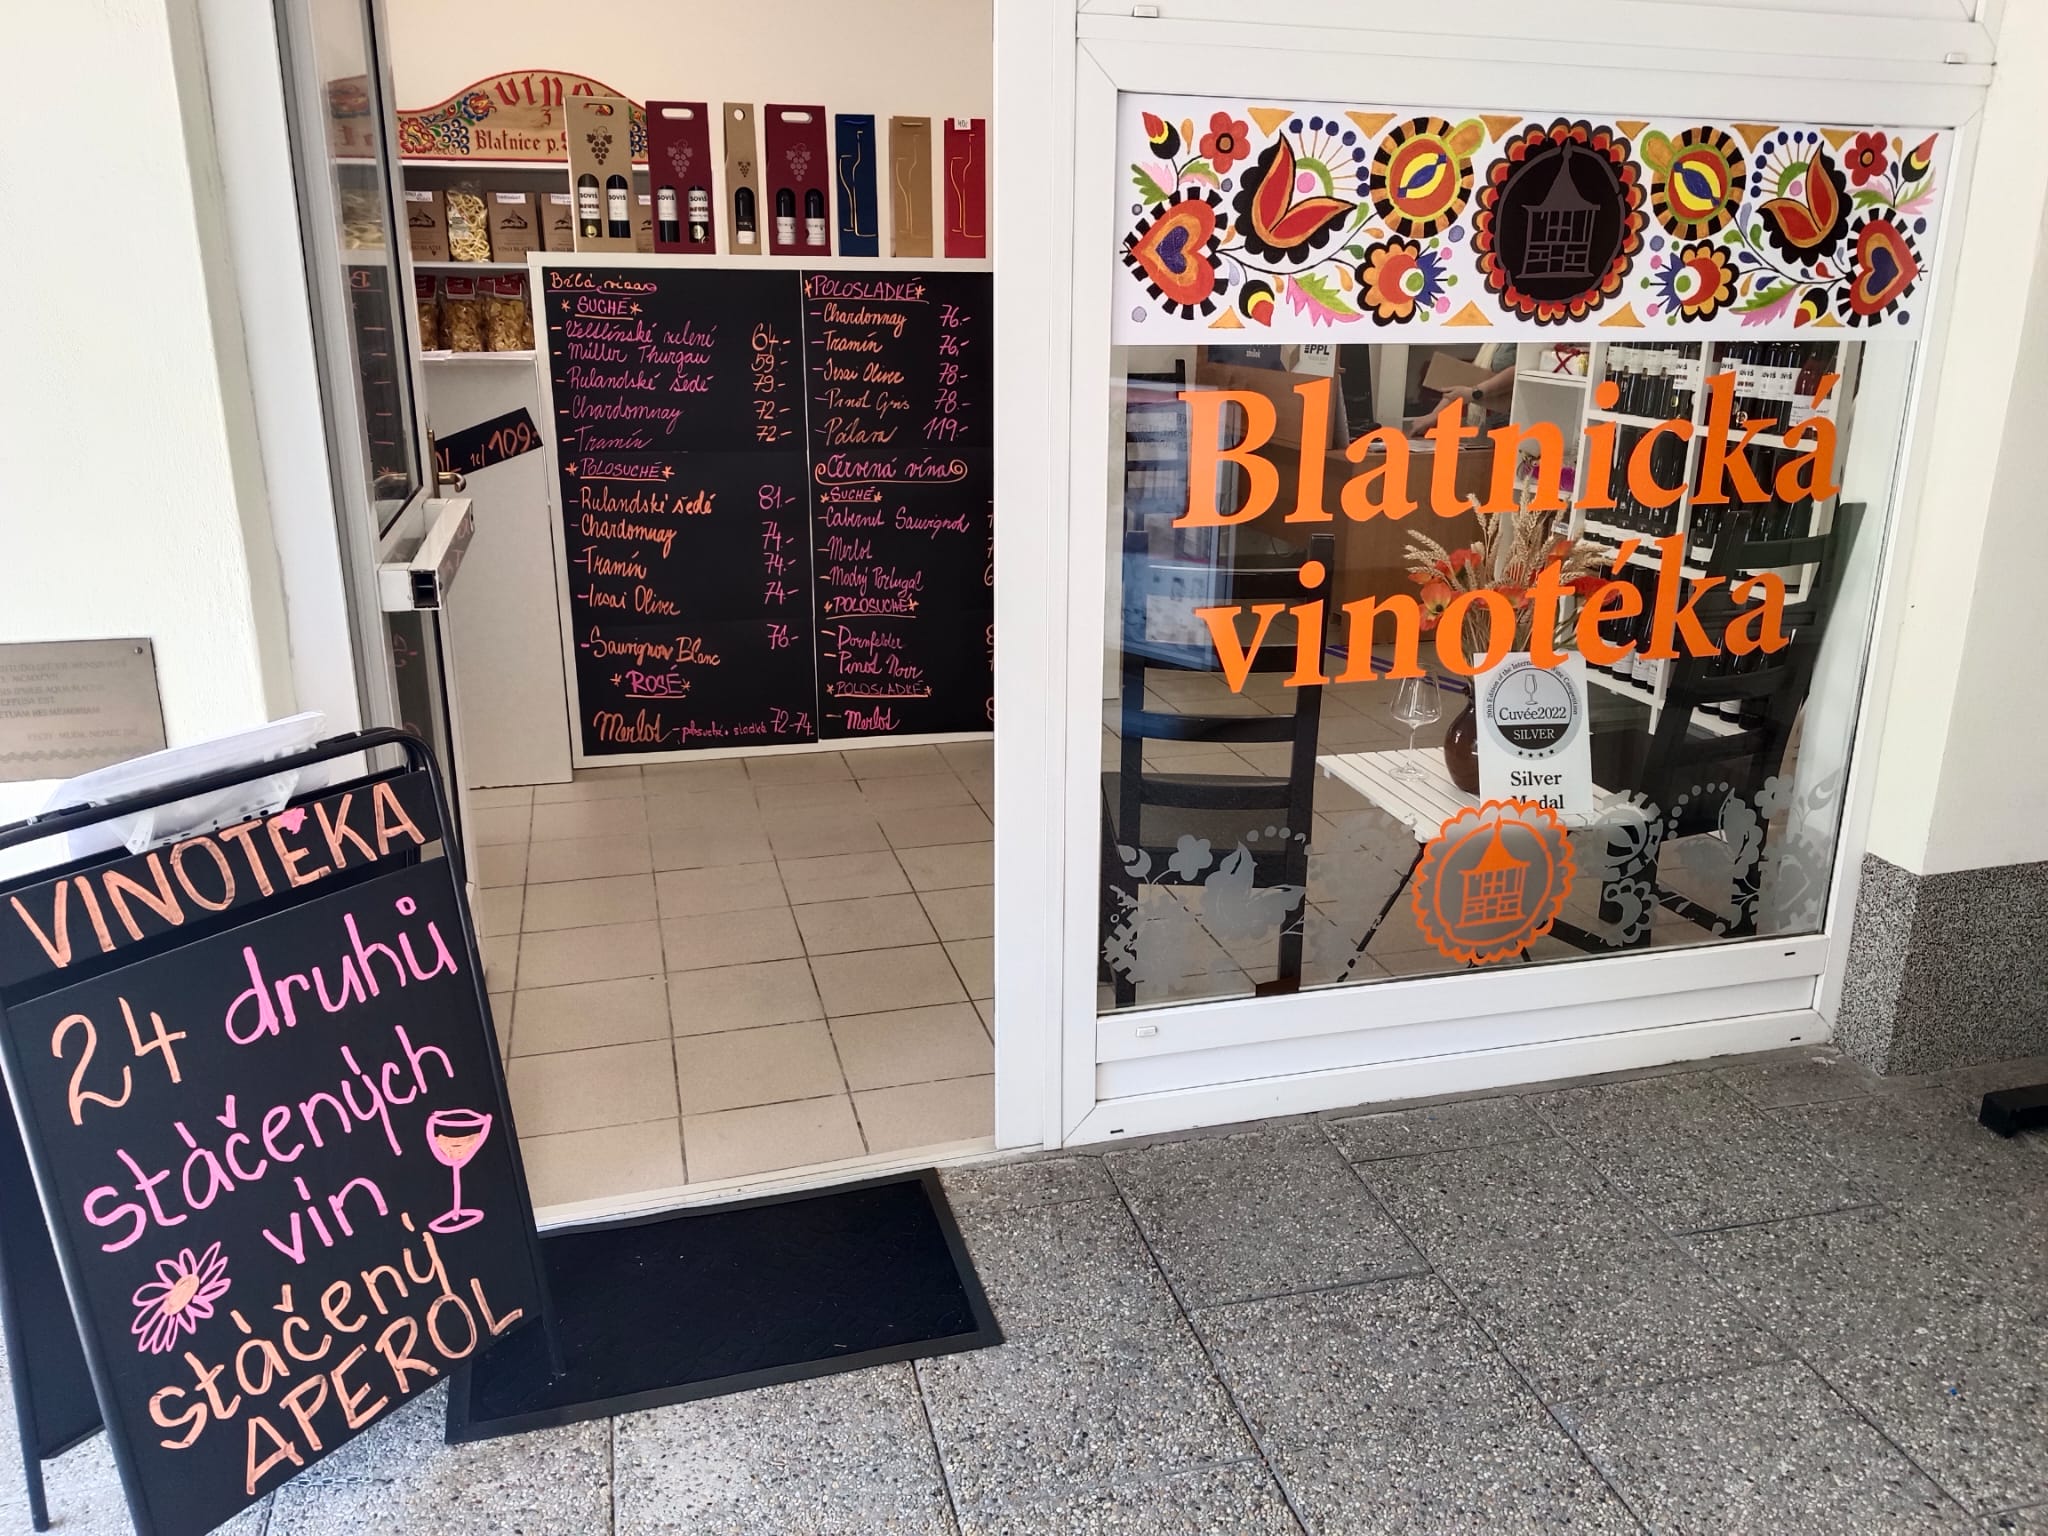 VÍNA
z
Blatnice p.
SOVIŠ
SOVIŠ
SOVIŠ
1l 109.-
Bílá vína
SUCHÉ
- Veltlínské zelení 64.-
- Müller Thurgau 59.-
- Rulandské šédé 79.-
- Chardonnay 72.-
- Tramín 72.-
POLOSUCHÉ
- Rulandské šedé 81.-
- Chardonnay 74.-
- Tramín 74.-
- Irsai Oliver 74.-
- Sauvignon Blanc 76.-
ROSÉ
Merlot - polosuché, sladké 72-74.-
POLOSLADKÉ
- Chardonnay 76.-
- Tramín 76,-
- Irsai Oliver 78.-
- Pinot Gris 78.-
- Pálava 119.-
Červená vína
SUCHÉ
- Cabernet Sauvignon
- Merlot
- Modrý Portugal
POLOSUCHÉ
- Dornfelder
- Pinot Noir
POLOSLADKÉ
- Merlot
PPL
Blatnická
vinotéka
Cuvée2022
SILVER
Silver
Medal
MCMXCVII
EFFUSA EST
VINOTÉKA
24 druhů
stáčených
vin
stáčený
APEROL